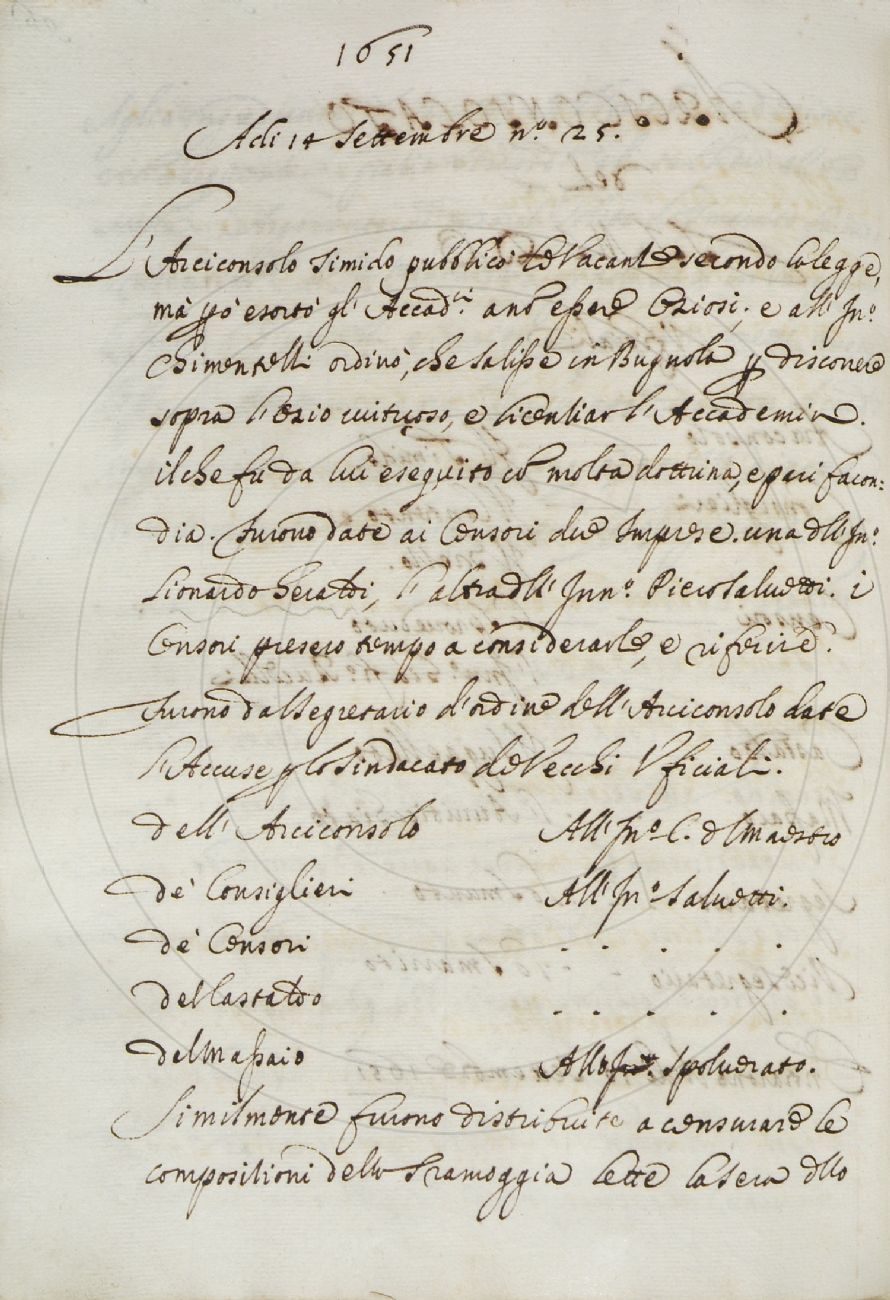 1651
Adi 14 Settembre n.º 25.
L'Arciconsolo simido pubblicò le Vacanze secondo la legge,
mà però esortò gl'Accad.ci a nõ essere Oziosi; e all'In.º
Chimentelli ordinò, che salisse in Bugnola p discorrere
sopra l'Ozio virtuoso, e licentiar l'Accademia.
il che fù da lui eseguito cõ molta dottrina, e pari facon:
dia. Furono date ai Censori due Imprese. una dll'In.º
Lionardo Giraldi, l'altra dll'Inn.º Piero Salvetti. i
Censori presero tempo a considerarle, e riferire.
Furono dal Segretario d'ordine dell'Arciconsolo date
l'Accuse p lo Sindacato de Vecchi Vficiali.
dell'Arciconsolo All'In.º C. dl Maestro
de' Consiglieri All'In.º Salvetti.
de' Censori . . . . .
del Castaldo . . . . .
del Massaio Allo Spolverato.
Similmente furono distribuite a censurare le
compositioni dello Stramoggia lette la sera dllo